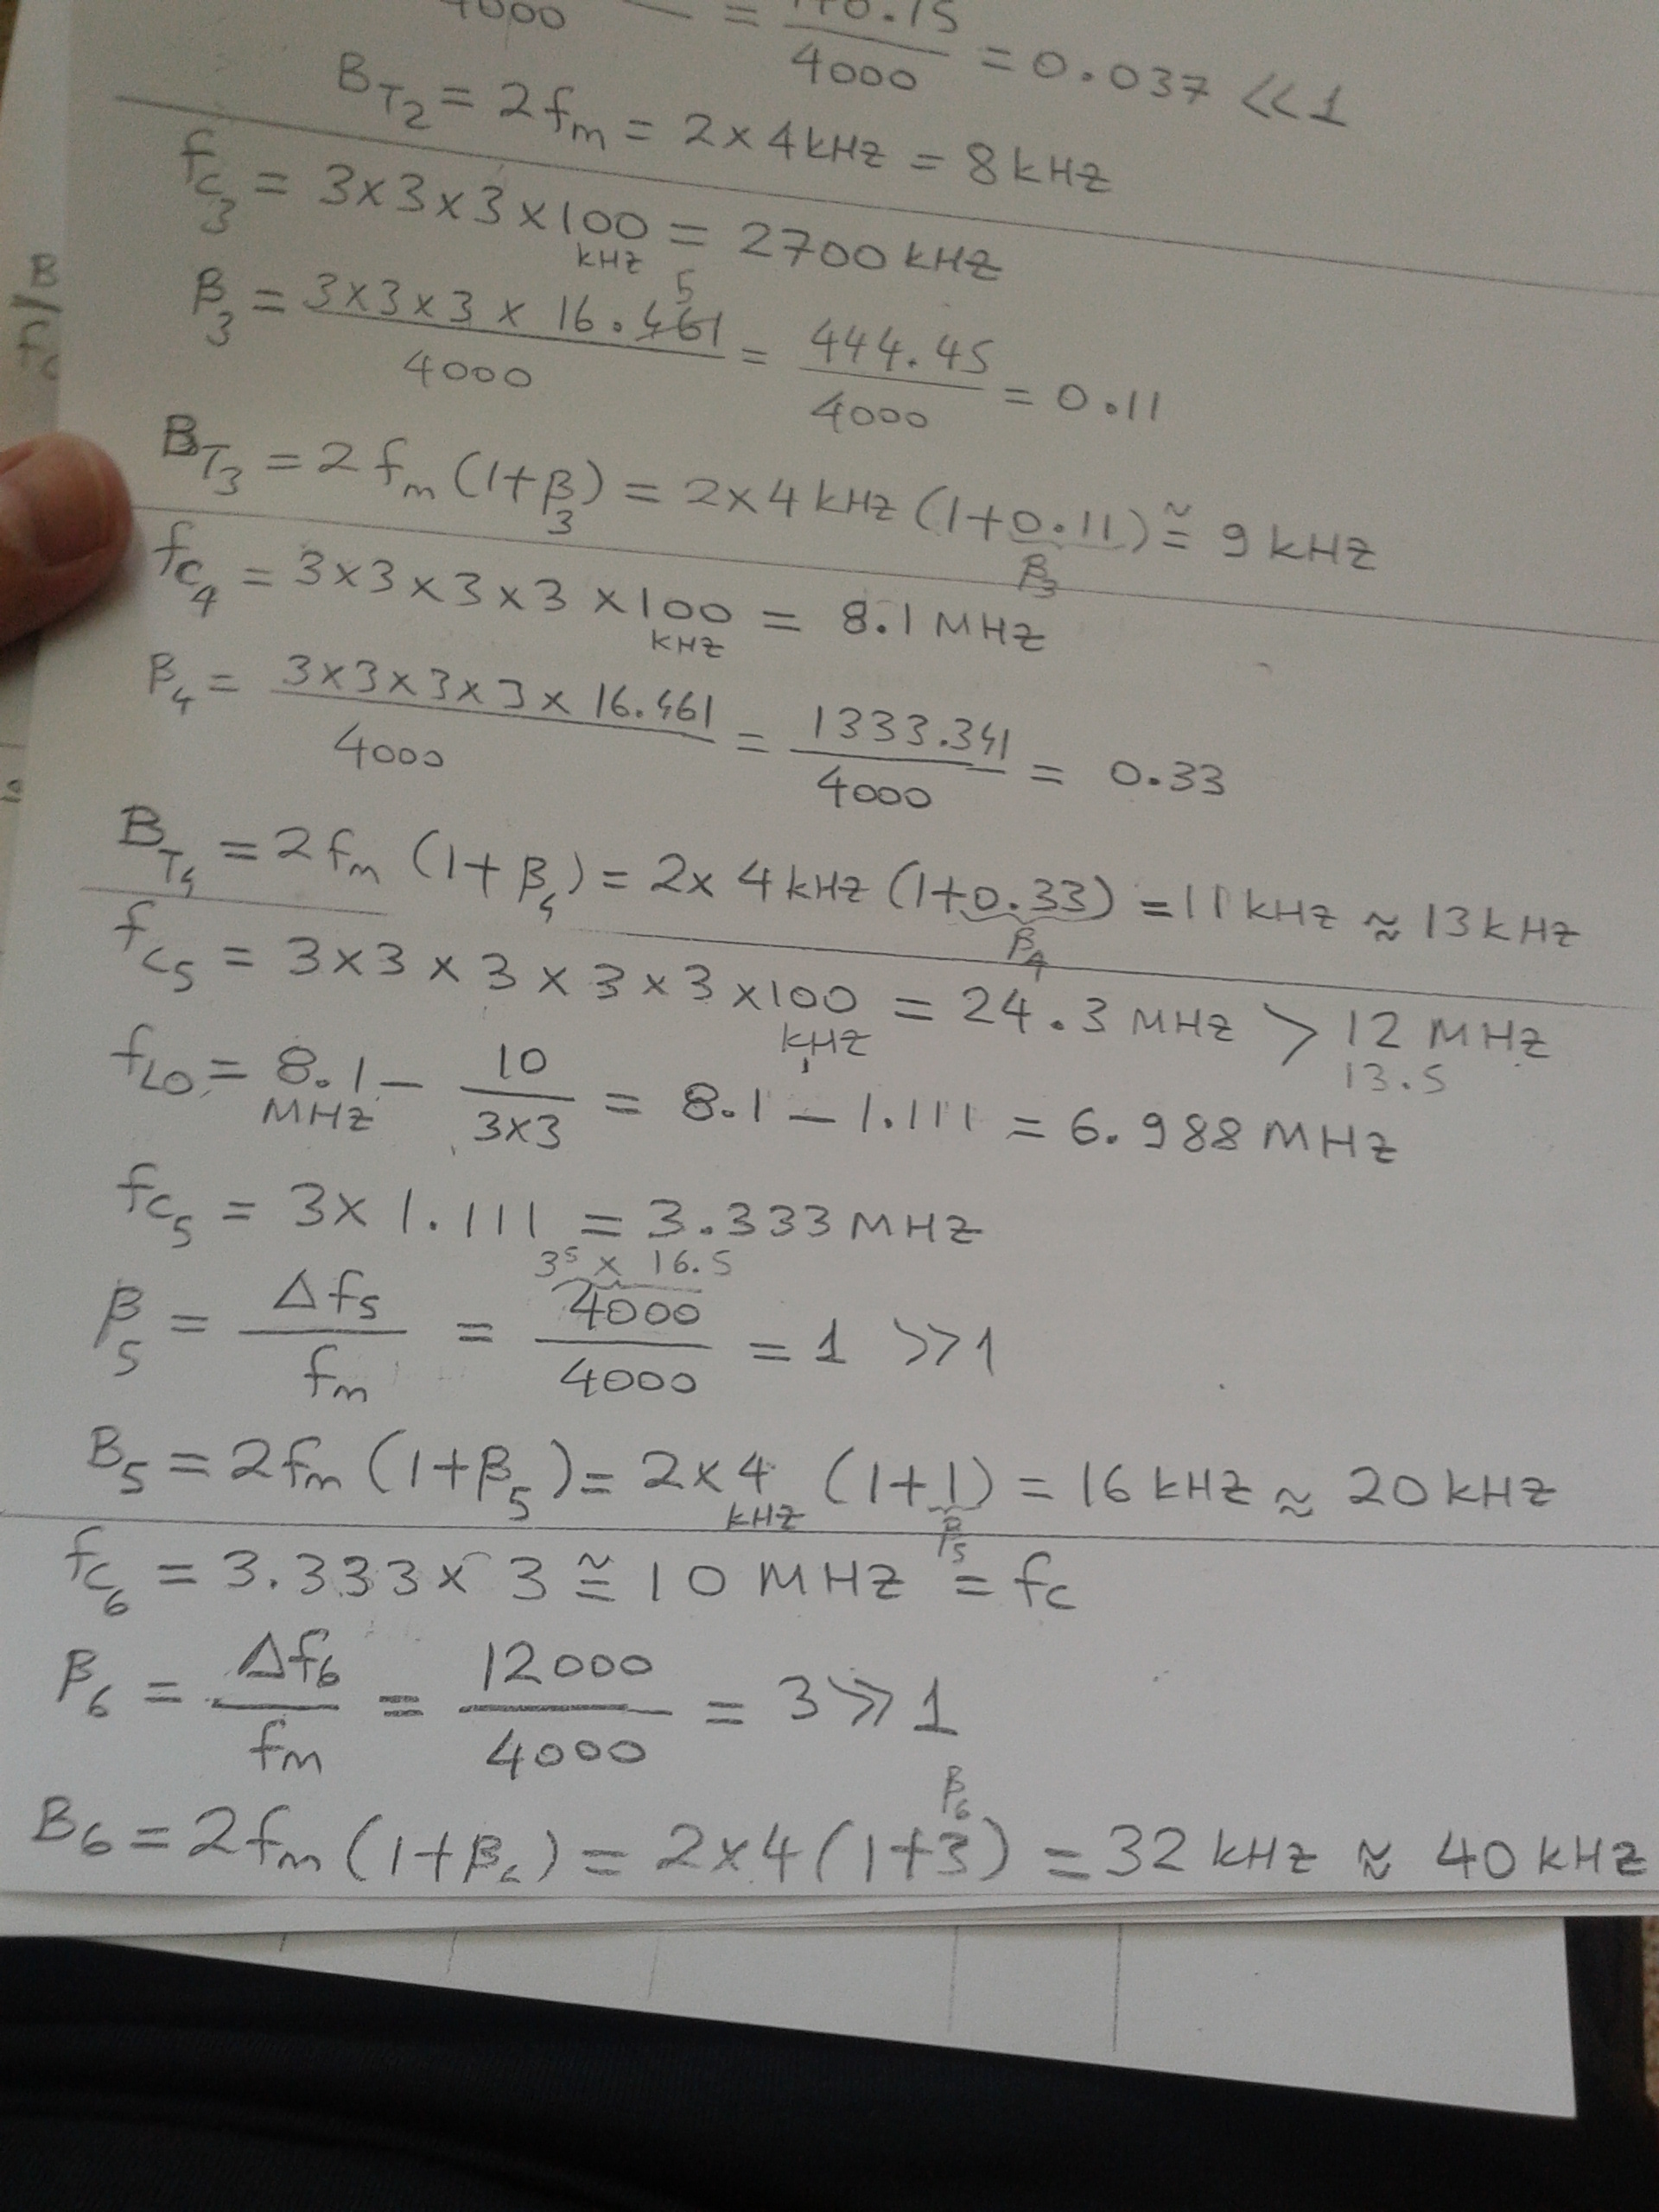 4000 = 148.15/4000 = 0.037 << 1
B_T2 = 2f_m = 2×4kHz = 8kHz
f_c3 = 3×3×3×100 kHz = 2700 kHz
β_3 = 3×3×3×16.5 461/4000 = 444.45/4000 = 0.11
B_T3 = 2f_m(1+β_3) = 2×4kHz(1+0.11) ≅ 9kHz
β_3
f_c4 = 3×3×3×3×100 kHz = 8.1 MHz
β_4 = 3×3×3×3×16.461/4000 = 1333.341/4000 = 0.33
B_T4 = 2f_m(1+β_4) = 2×4kHz(1+0.33) = 11kHz ≈ 13kHz
β_4
f_c5 = 3×3×3×3×3×100 kHz = 24.3 MHz > 12 MHz
13.5
f_LO = 8.1 MHz − 10/3×3 = 8.1 − 1.111 = 6.988 MHz
f_c5 = 3×1.111 = 3.333 MHz
3^5 × 16.5
β_5 = Δf_5/f_m = 4000/4000 = 1 >>1
B_5 = 2f_m(1+β_5) = 2×4 kHz (1+1) = 16kHz ≈ 20kHz
β_5
f_c6 = 3.333×3 ≅ 10 MHz = f_c
β_6 = Δf_6/f_m = 12000/4000 = 3 >> 1
β_6
B_6 = 2f_m(1+β_6) = 2×4(1+3) = 32kHz ≈ 40kHz